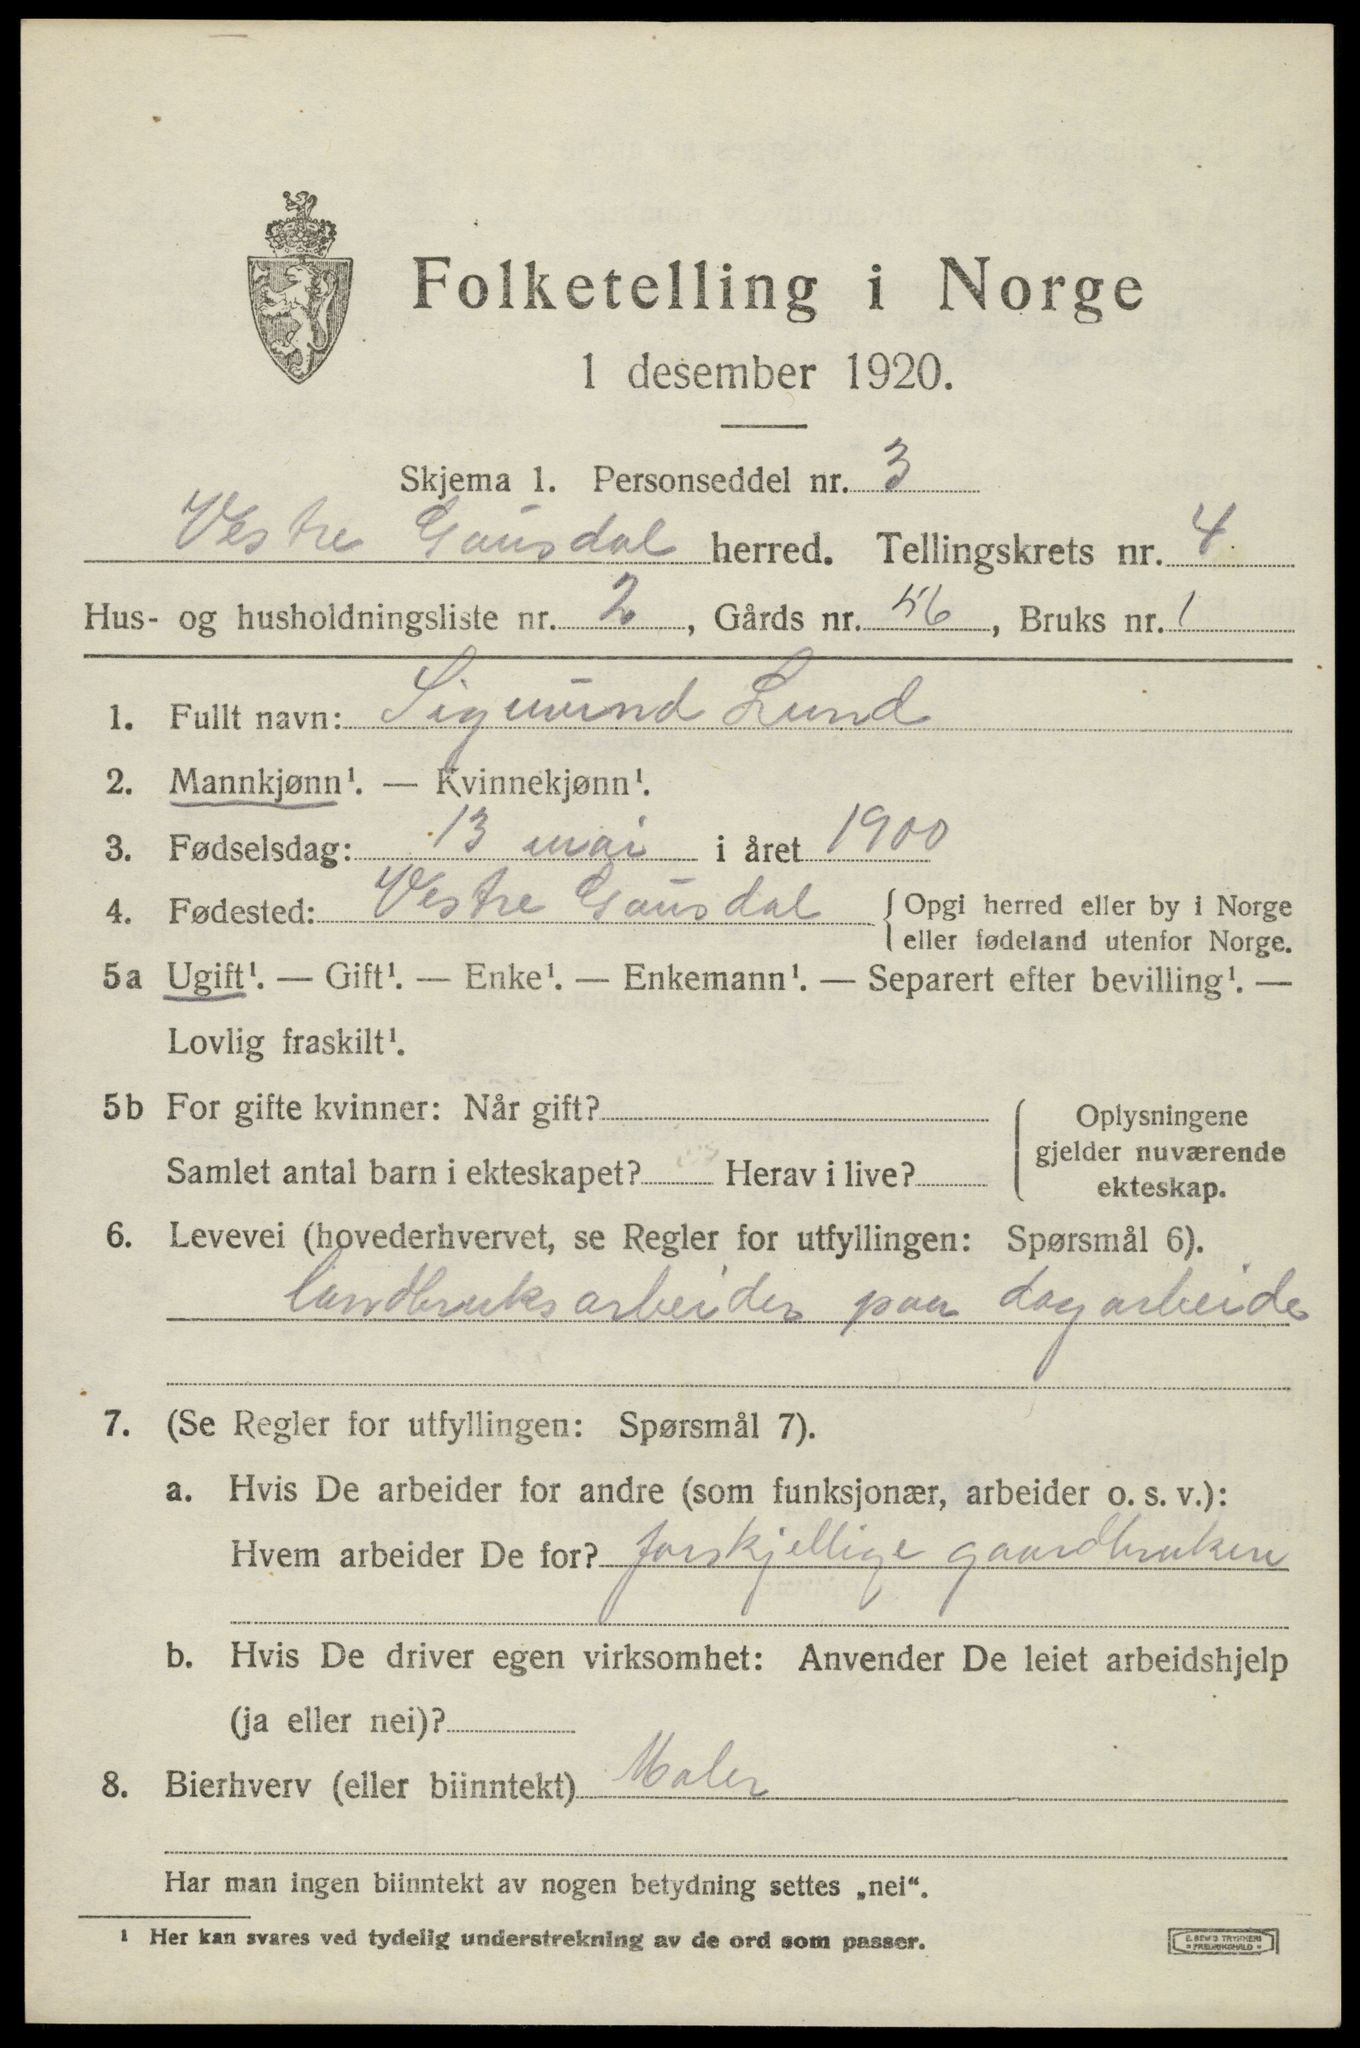 Folketelling i Norge
1 desember 1920.
Skjema 1. Personseddel nr. 3
Vestre Gausdal herred. Tellingskrets nr. 4
Hus- og husholdningsliste nr. 2, Gårds nr. 56, Bruks nr. 1
1. Fullt navn: Sigmund Lund
2. Mannkjønn¹. — Kvinnekjønn¹.
3. Fødselsdag: 13 mai i året 1900
4. Fødested: Vestre Gausdal { Opgi herred eller by i Norge
eller fødeland utenfor Norge.
5a Ugift¹. — Gift¹. — Enke¹. — Enkemann¹. — Separert efter bevilling¹. —
Lovlig fraskilt¹.
5b For gifte kvinner: Når gift?
Samlet antal barn i ekteskapet? Herav i live?
Oplysningene
gjelder nuværende
ekteskap.
6. Levevei (hovederhvervet, se Regler for utfyllingen: Spørsmål 6).
landbruksarbeider paa dagarbeide
7. (Se Regler for utfyllingen: Spørsmål 7).
a. Hvis De arbeider for andre (som funksjonær, arbeider o. s. v.):
Hvem arbeider De for? forskjellige gaardbrukere
b. Hvis De driver egen virksomhet: Anvender De leiet arbeidshjelp
(ja eller nei)?
8. Bierhverv (eller biinntekt) Maler
Har man ingen biinntekt av nogen betydning settes „nei“.
¹ Her kan svares ved tydelig understrekning av de ord som passer.